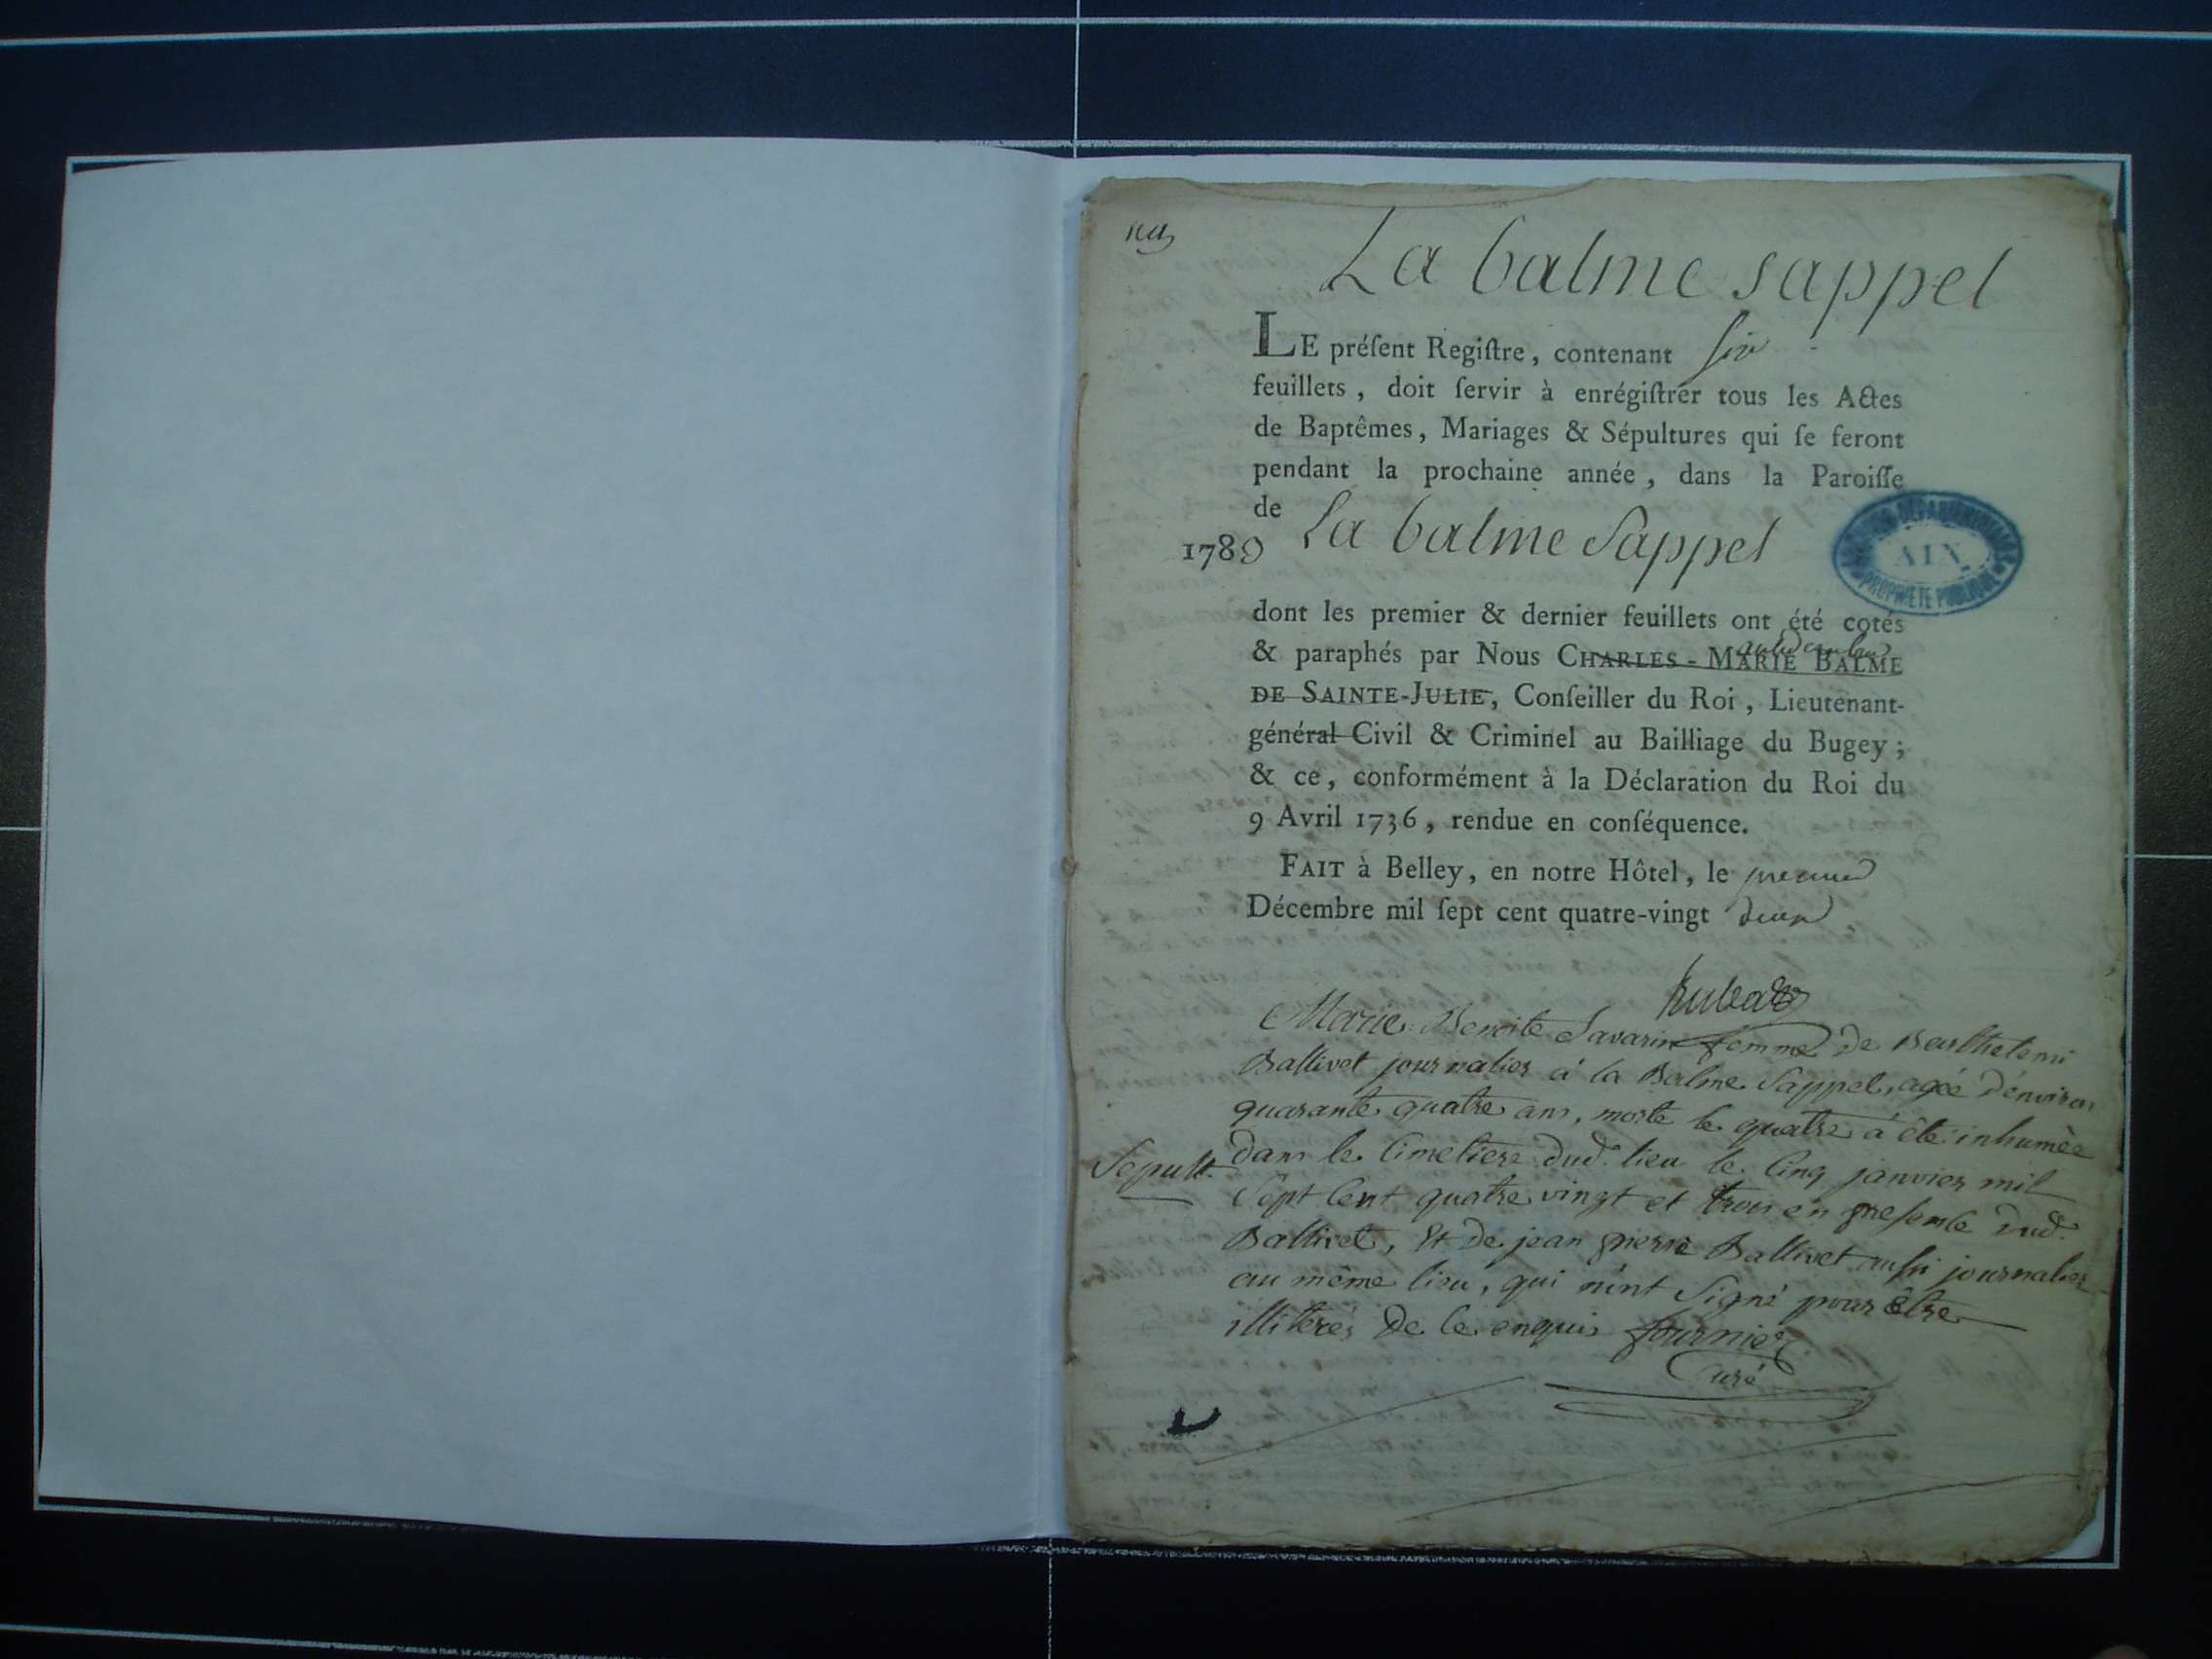 La balme sappel
LE préſent Regiſtre, contenant six
feuillets, doit ſervir à enrégiſtrer tous les Actes
de Baptêmes, Mariages & Sépultures qui ſe feront
pendant la prochaine année, dans la Paroiſſe
de
1783 La balme Sappel
ARCHIVES DÉPARTEMENTALES
AIN
PROPRIÉTÉ PUBLIQUE
dont les premier & dernier feuillets ont été cotés
& paraphés par Nous CHARLES-MARIE BALME
DE SAINTE-JULIE, Conſeiller du Roi, Lieutenant-
général Civil & Criminel au Bailliage du Bugey;
& ce, conformément à la Déclaration du Roi du
9 Avril 1736, rendue en conſéquence.
FAIT à Belley, en notre Hôtel, le premier
Décembre mil ſept cent quatre-vingt deux
Marie Benoite Savarin femme de Barthelemi
Ballivet journalier à la Balme Sappel, agée d'environ
quarante quatre ans, morte le quatre a été inhumèe
Sepult. dans le Cimetiere dud. lieu le Cinq janvier mil
Sept Cent quatre vingt et trois en presence dud.
Ballivet, Et de jean pierre Ballivet aussi journalier
au même lieu, qui n'ont Signé pour être
illiterés de ce enquis fournier
Curé